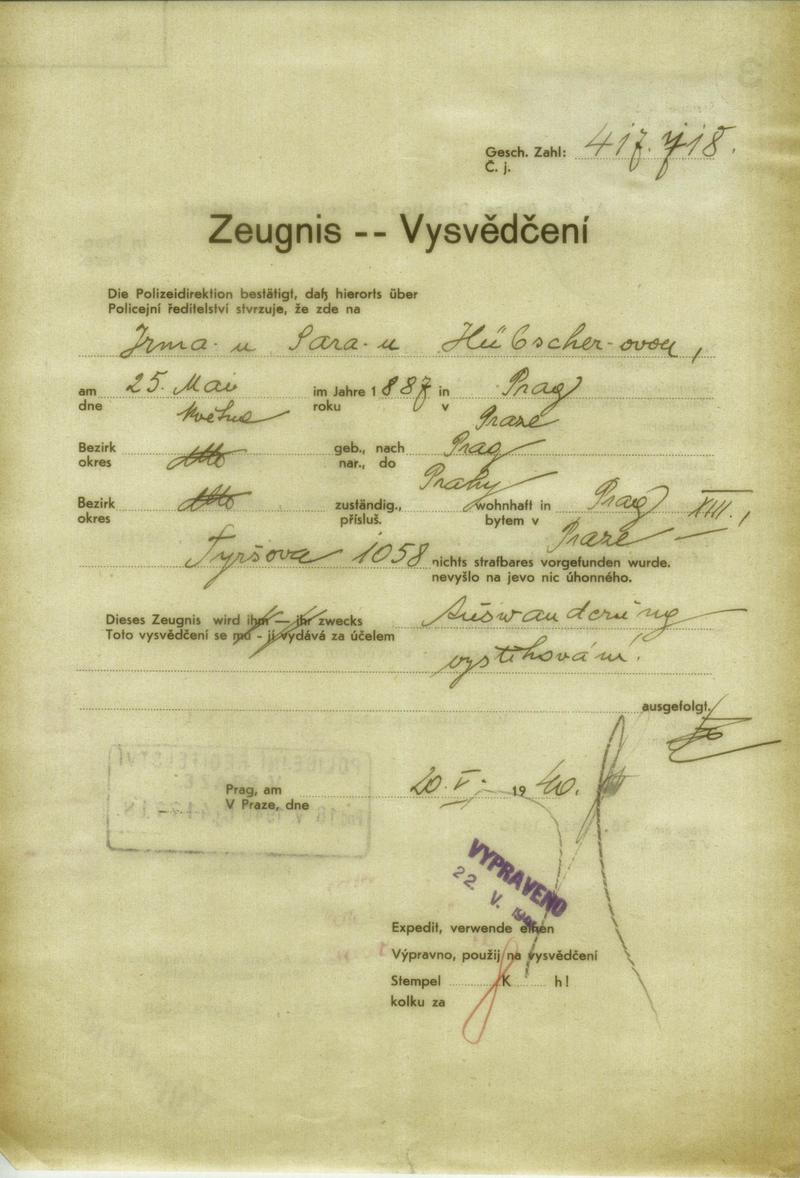 Gesch. Zahl: 417.718.
Č. j.
Zeugnis -- Vysvědčení
Die Polizeidirektion bestätigt, daß hierorts über
Policejní ředitelství stvrzuje, že zde na
Irma-u Sara-u Hübscher-ovou,
am 25. Mai im Jahre 1887 in Prag
dne května roku v Praze
Bezirk dtto geb., nach Prag
okres nar., do Prahy
Bezirk dtto zuständig., wohnhaft in Prag XIII.,
okres přísluš. bytem v Praze
Tyršova 1058 nichts strafbares vorgefunden wurde.
nevyšlo na jevo nic úhonného.
Dieses Zeugnis wird ihm — ihr zwecks Auswanderung
Toto vysvědčení se mu - jí vydává za účelem vystěhování.
ausgefolgt.
POLICEJNÍ ŘEDITELSTVÍ
V PRAZE
Prag, am 20. V. 1940.
V Praze, dne
VYPRAVENO
22. V. 1940
Expedit, verwende einen
Výpravno, použij na vysvědčení
Stempel K h!
kolku za